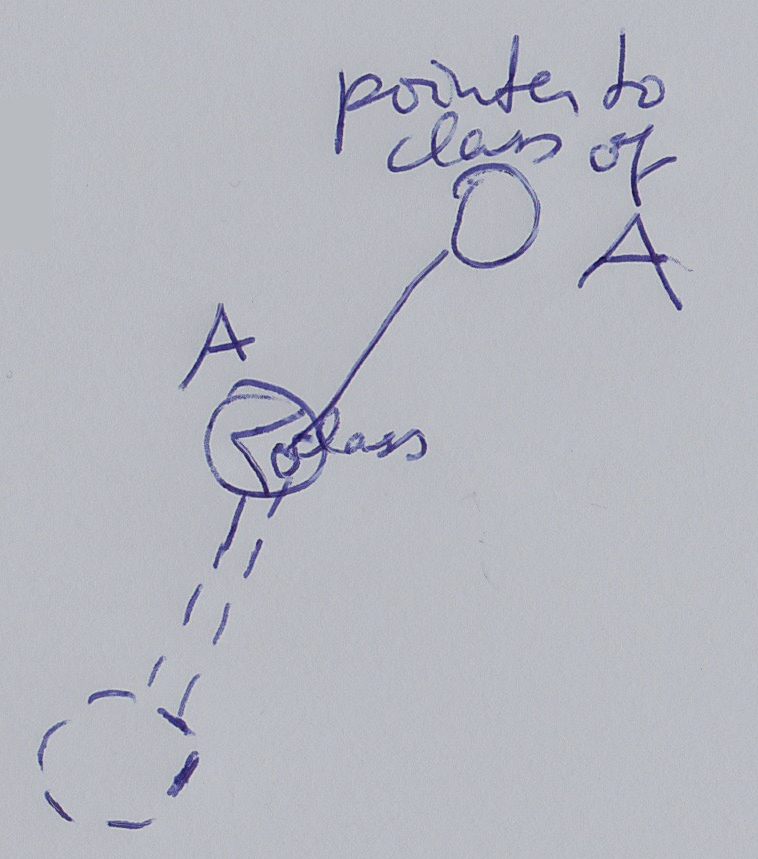 pointer to
class of
A
A
class